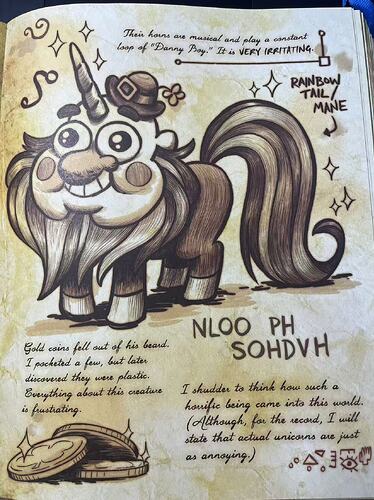 Their horns are musical and play a constant
loop of "Danny Boy." It is VERY IRRITATING.
RAINBOW
TAIL/
MANE
NLOO PH
SOHDVH
Gold coins fell out of his beard.
I pocketed a few, but later
discovered they were plastic.
Everything about this creature
is frustrating.
I shudder to think how such a
horrific being came into this world.
(Although, for the record, I will
state that actual unicorns are just
as annoying.)